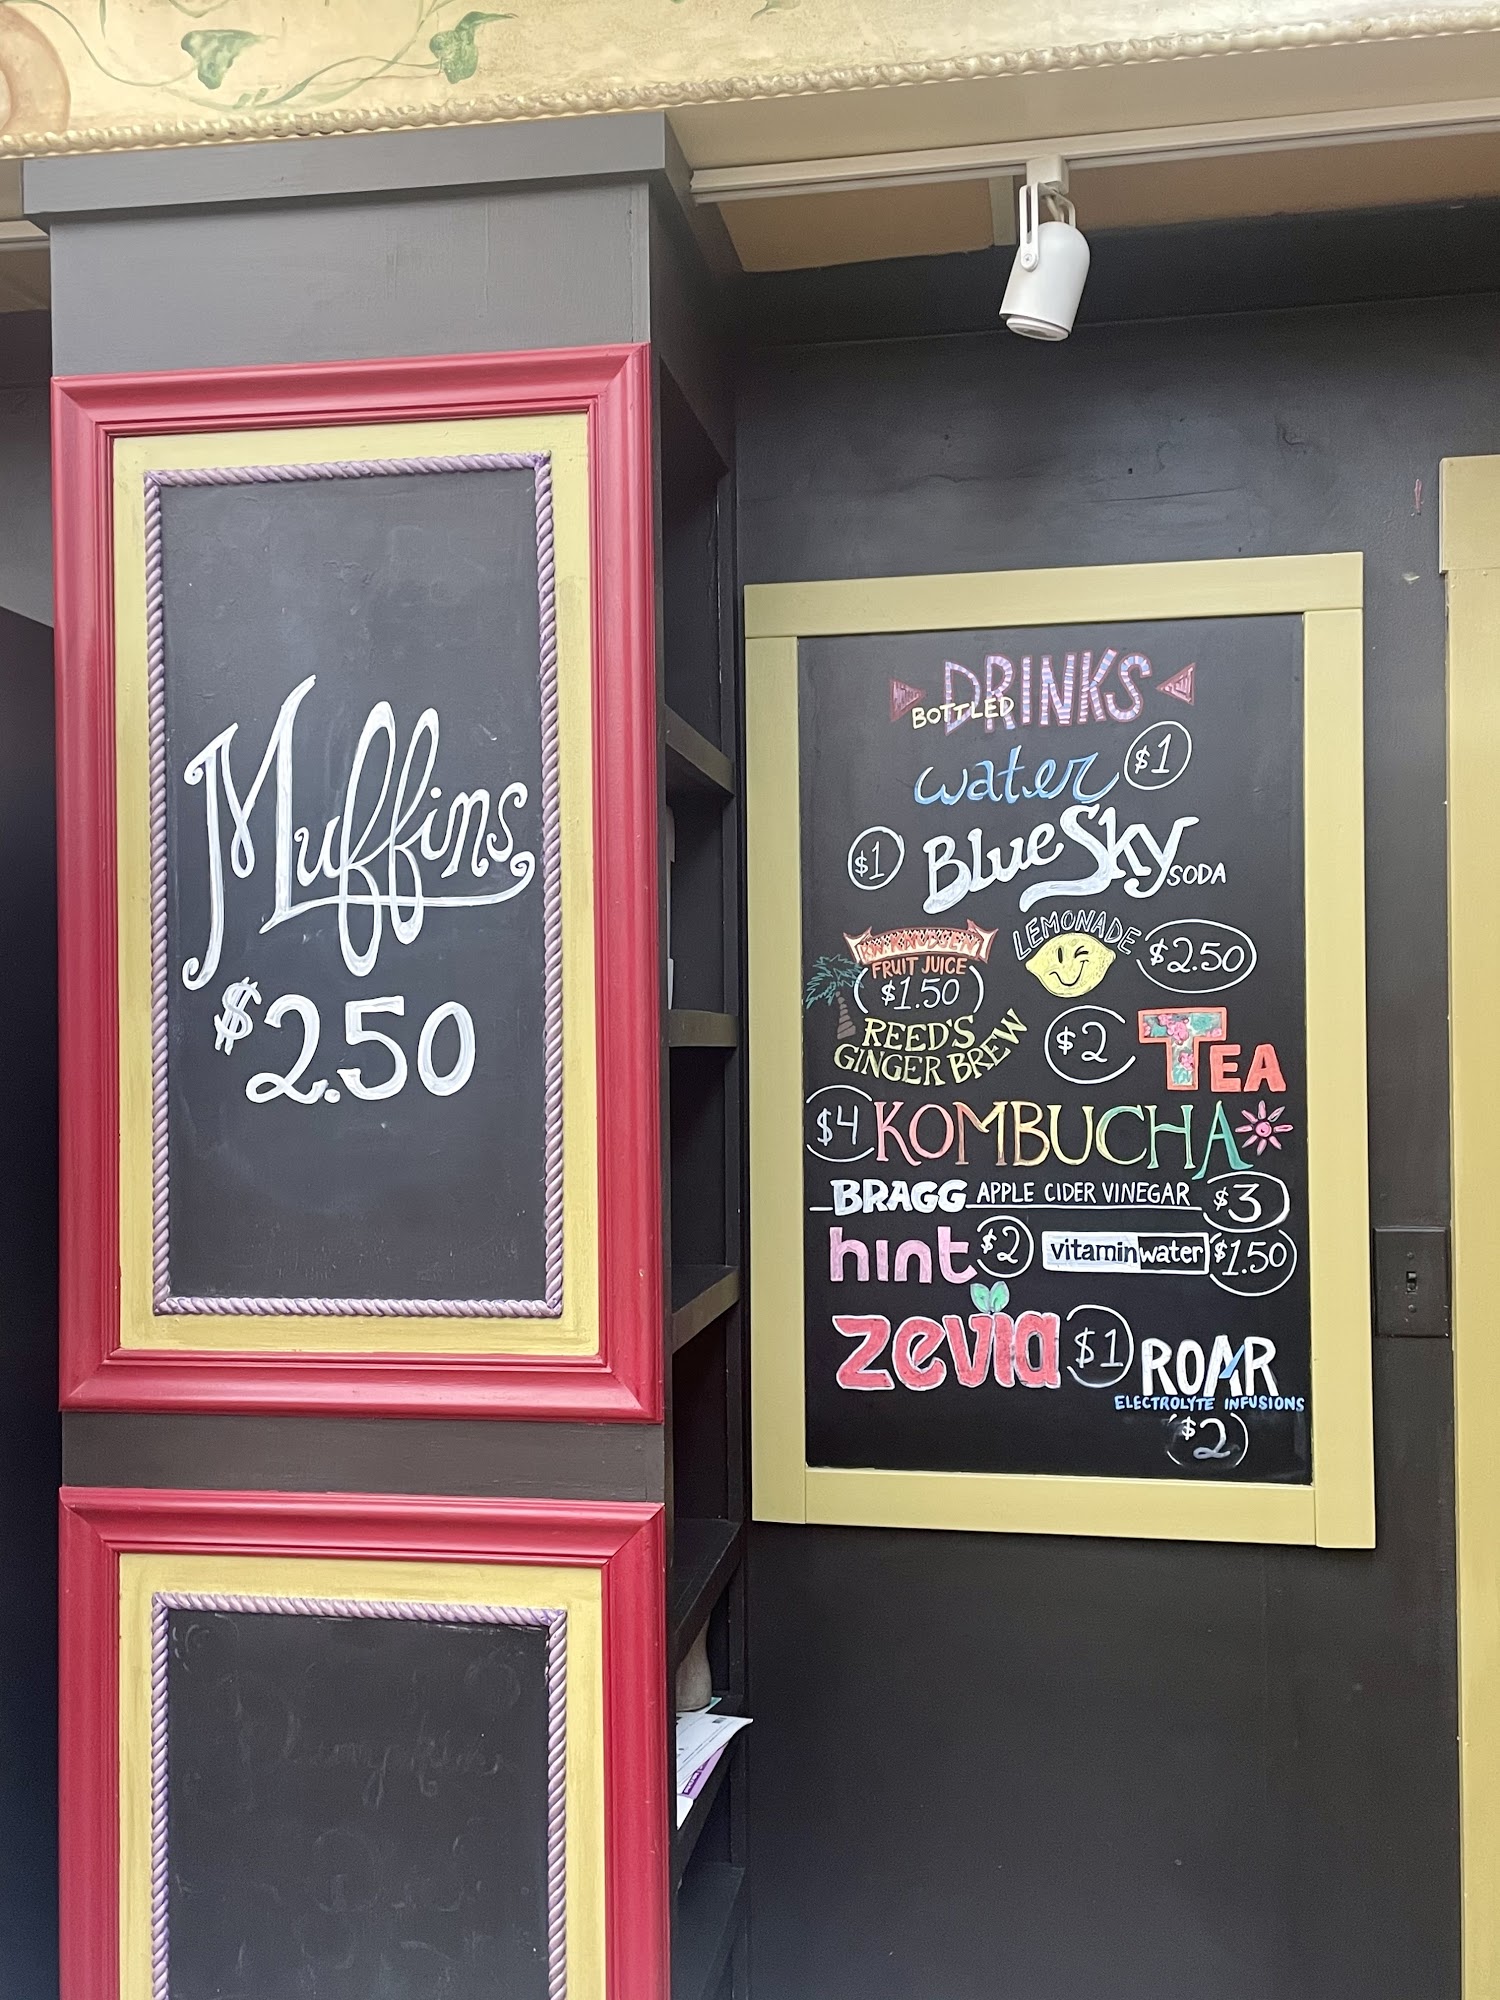 Muffins
$2.50
DRINKS
BOTTLED
water $1
$1 Blue Sky SODA
R.W. KNUDSEN
FRUIT JUICE
$1.50
LEMONADE $2.50
REED'S
GINGER BREW
$2 TEA
$4 KOMBUCHA
BRAGG APPLE CIDER VINEGAR $3
hint $2 vitaminwater $1.50
zevia $1
ROAR
ELECTROLYTE INFUSIONS
$2